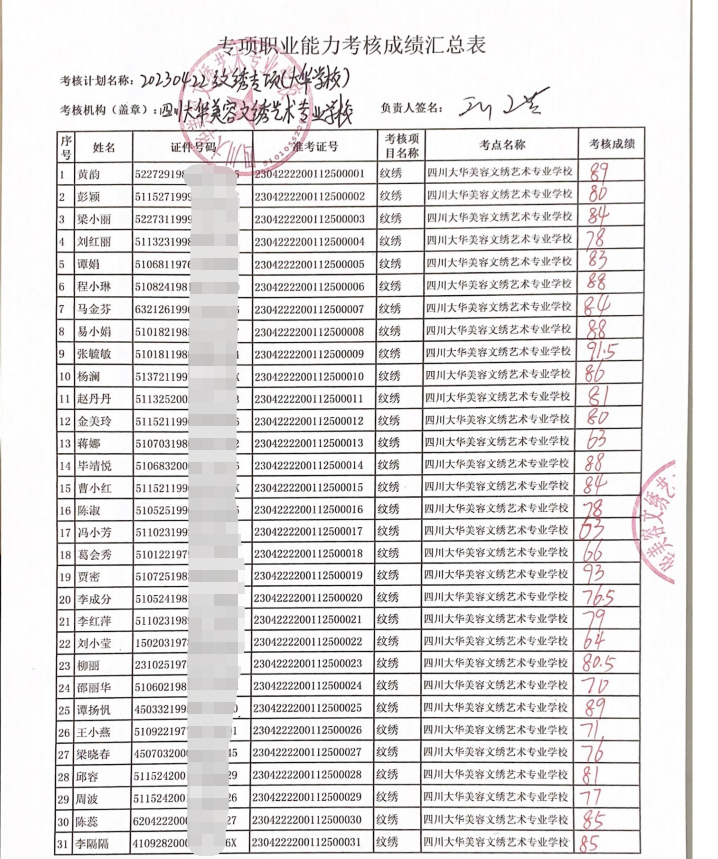 专项职业能力考核成绩汇总表
考核计划名称：20230422纹绣专项(大华学校)
考核机构（盖章）：四川大华美容文绣艺术专业学校 负责人签名：
序号 姓名 证件号码 准考证号 考核项目名称 考点名称 考核成绩
1 黄韵 522729198 2304222200112500001 纹绣 四川大华美容文绣艺术专业学校 89
2 彭颖 511527199 2304222200112500002 纹绣 四川大华美容文绣艺术专业学校 80
3 梁小丽 522731199 2304222200112500003 纹绣 四川大华美容文绣艺术专业学校 84
4 刘红丽 511323199 2304222200112500004 纹绣 四川大华美容文绣艺术专业学校 78
5 谭娟 510681197 2304222200112500005 纹绣 四川大华美容文绣艺术专业学校 83
6 程小琳 510824198 2304222200112500006 纹绣 四川大华美容文绣艺术专业学校 88
7 马金芬 632126199 2304222200112500007 纹绣 四川大华美容文绣艺术专业学校 84
8 易小娟 510182198 2304222200112500008 纹绣 四川大华美容文绣艺术专业学校 88
9 张毓敏 510181198 2304222200112500009 纹绣 四川大华美容文绣艺术专业学校 91.5
10 杨澜 513721199 X 2304222200112500010 纹绣 四川大华美容文绣艺术专业学校 86
11 赵丹丹 511325200 2304222200112500011 纹绣 四川大华美容文绣艺术专业学校 81
12 金美玲 511521199 2304222200112500012 纹绣 四川大华美容文绣艺术专业学校 80
13 蒋娜 510703198 2 2304222200112500013 纹绣 四川大华美容文绣艺术专业学校 63
14 毕靖悦 510683200 2304222200112500014 纹绣 四川大华美容文绣艺术专业学校 88
15 曹小红 511521199 X 2304222200112500015 纹绣 四川大华美容文绣艺术专业学校 84
16 陈淑 510525199 2304222200112500016 纹绣 四川大华美容文绣艺术专业学校 78
17 冯小芳 511023199 2304222200112500017 纹绣 四川大华美容文绣艺术专业学校 63
18 葛会秀 510122197 2304222200112500018 纹绣 四川大华美容文绣艺术专业学校 66
19 贾密 510725198 2304222200112500019 纹绣 四川大华美容文绣艺术专业学校 93
20 李成分 510524198 2304222200112500020 纹绣 四川大华美容文绣艺术专业学校 76.5
21 李红萍 511023198 2304222200112500021 纹绣 四川大华美容文绣艺术专业学校 79
22 刘小莹 150203197 2304222200112500022 纹绣 四川大华美容文绣艺术专业学校 64
23 柳丽 231025197 2304222200112500023 纹绣 四川大华美容文绣艺术专业学校 80.5
24 邵丽华 510602198 2304222200112500024 纹绣 四川大华美容文绣艺术专业学校 70
25 谭扬帆 450332199 2304222200112500025 纹绣 四川大华美容文绣艺术专业学校 89
26 王小燕 510922197 1 2304222200112500026 纹绣 四川大华美容文绣艺术专业学校 71
27 梁晓春 450703200 45 2304222200112500027 纹绣 四川大华美容文绣艺术专业学校 76
28 邱容 511524200 29 2304222200112500028 纹绣 四川大华美容文绣艺术专业学校 81
29 周波 511524200 26 2304222200112500029 纹绣 四川大华美容文绣艺术专业学校 77
30 陈蕊 620422200 27 2304222200112500030 纹绣 四川大华美容文绣艺术专业学校 85
31 李隔隔 410928200 6X 2304222200112500031 纹绣 四川大华美容文绣艺术专业学校 85